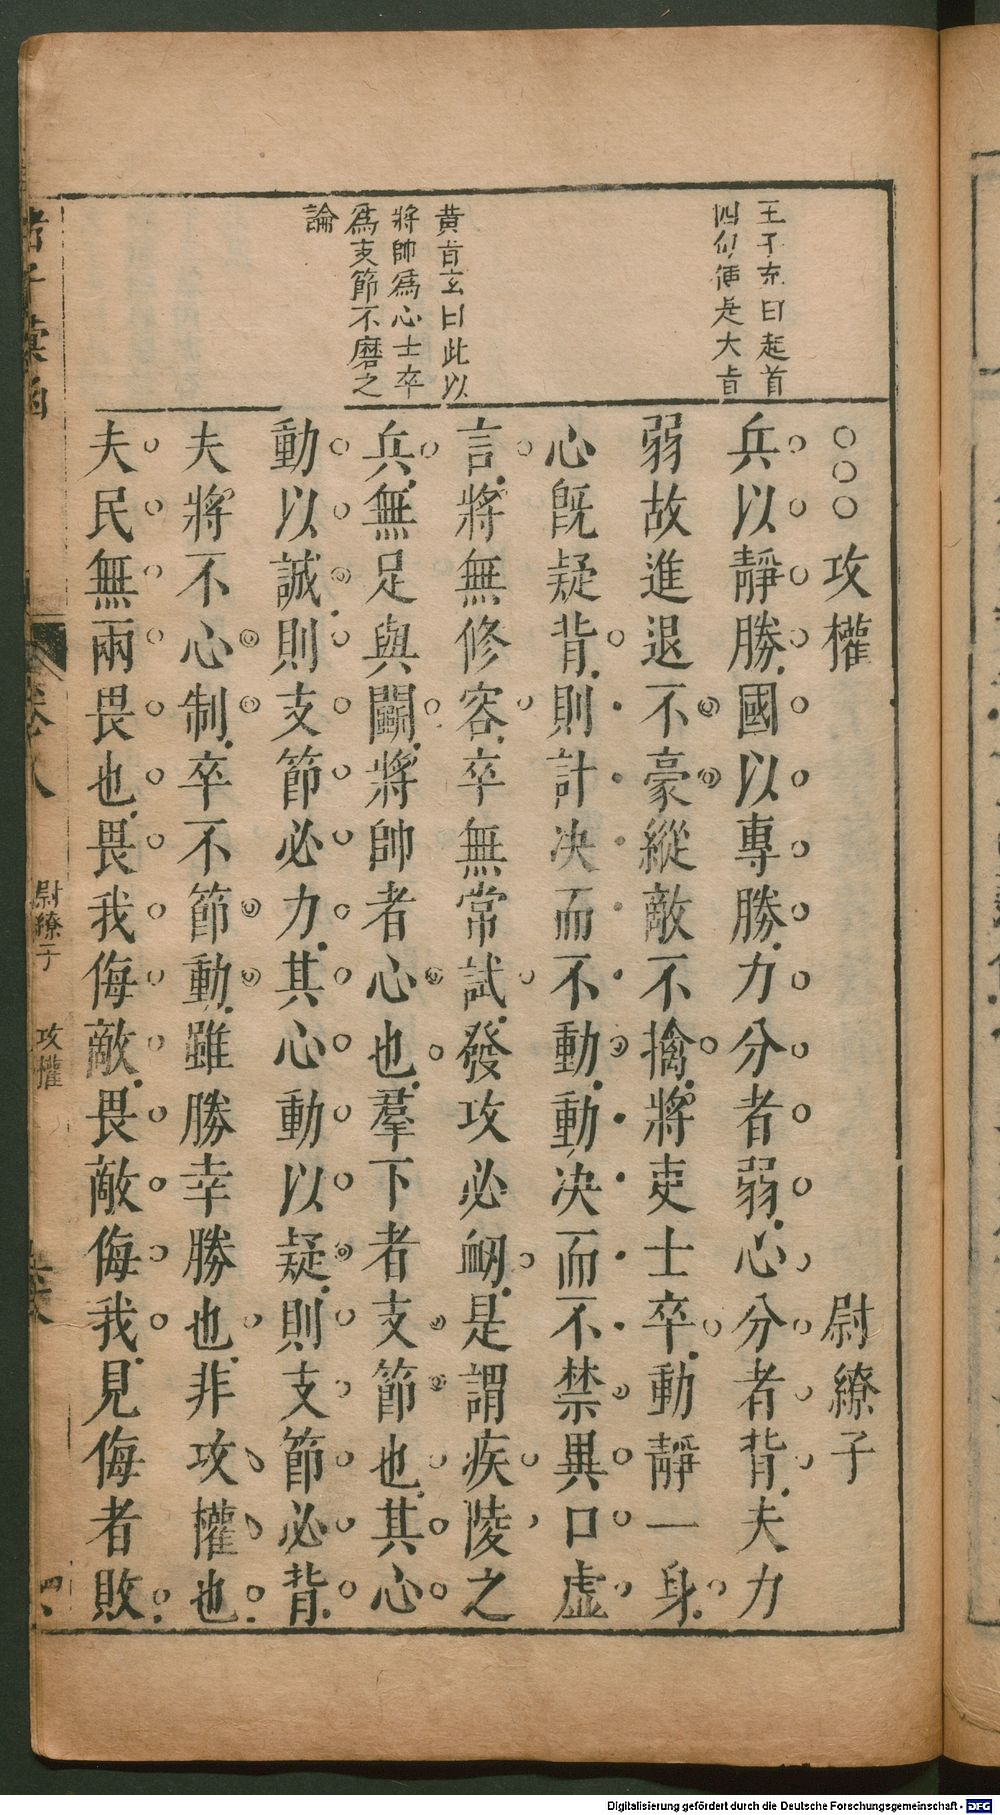 王子充曰起首
四句便是大旨
黄首玄曰此以
將帥爲心士卒
爲支節不磨之
論
攻權 尉繚子
兵以靜勝國以專勝力分者弱心分者背夫力
弱故進退不豪縱敵不擒將吏士卒動靜一身
心旣疑背則計决而不動動决而不禁異口虛
言將無修容卒無常試發攻必衂是謂疾陵之
兵無足與鬭將帥者心也羣下者支節也其心
動以誠則支節必力其心動以疑則支節必背
夫將不心制卒不節動雖勝幸勝也非攻權也
夫民無兩畏也畏我侮敵畏敵侮我見侮者敗
卷八
尉繚子 攻權
Digitalisierung gefördert durch die Deutsche Forschungsgemeinschaft - DFG